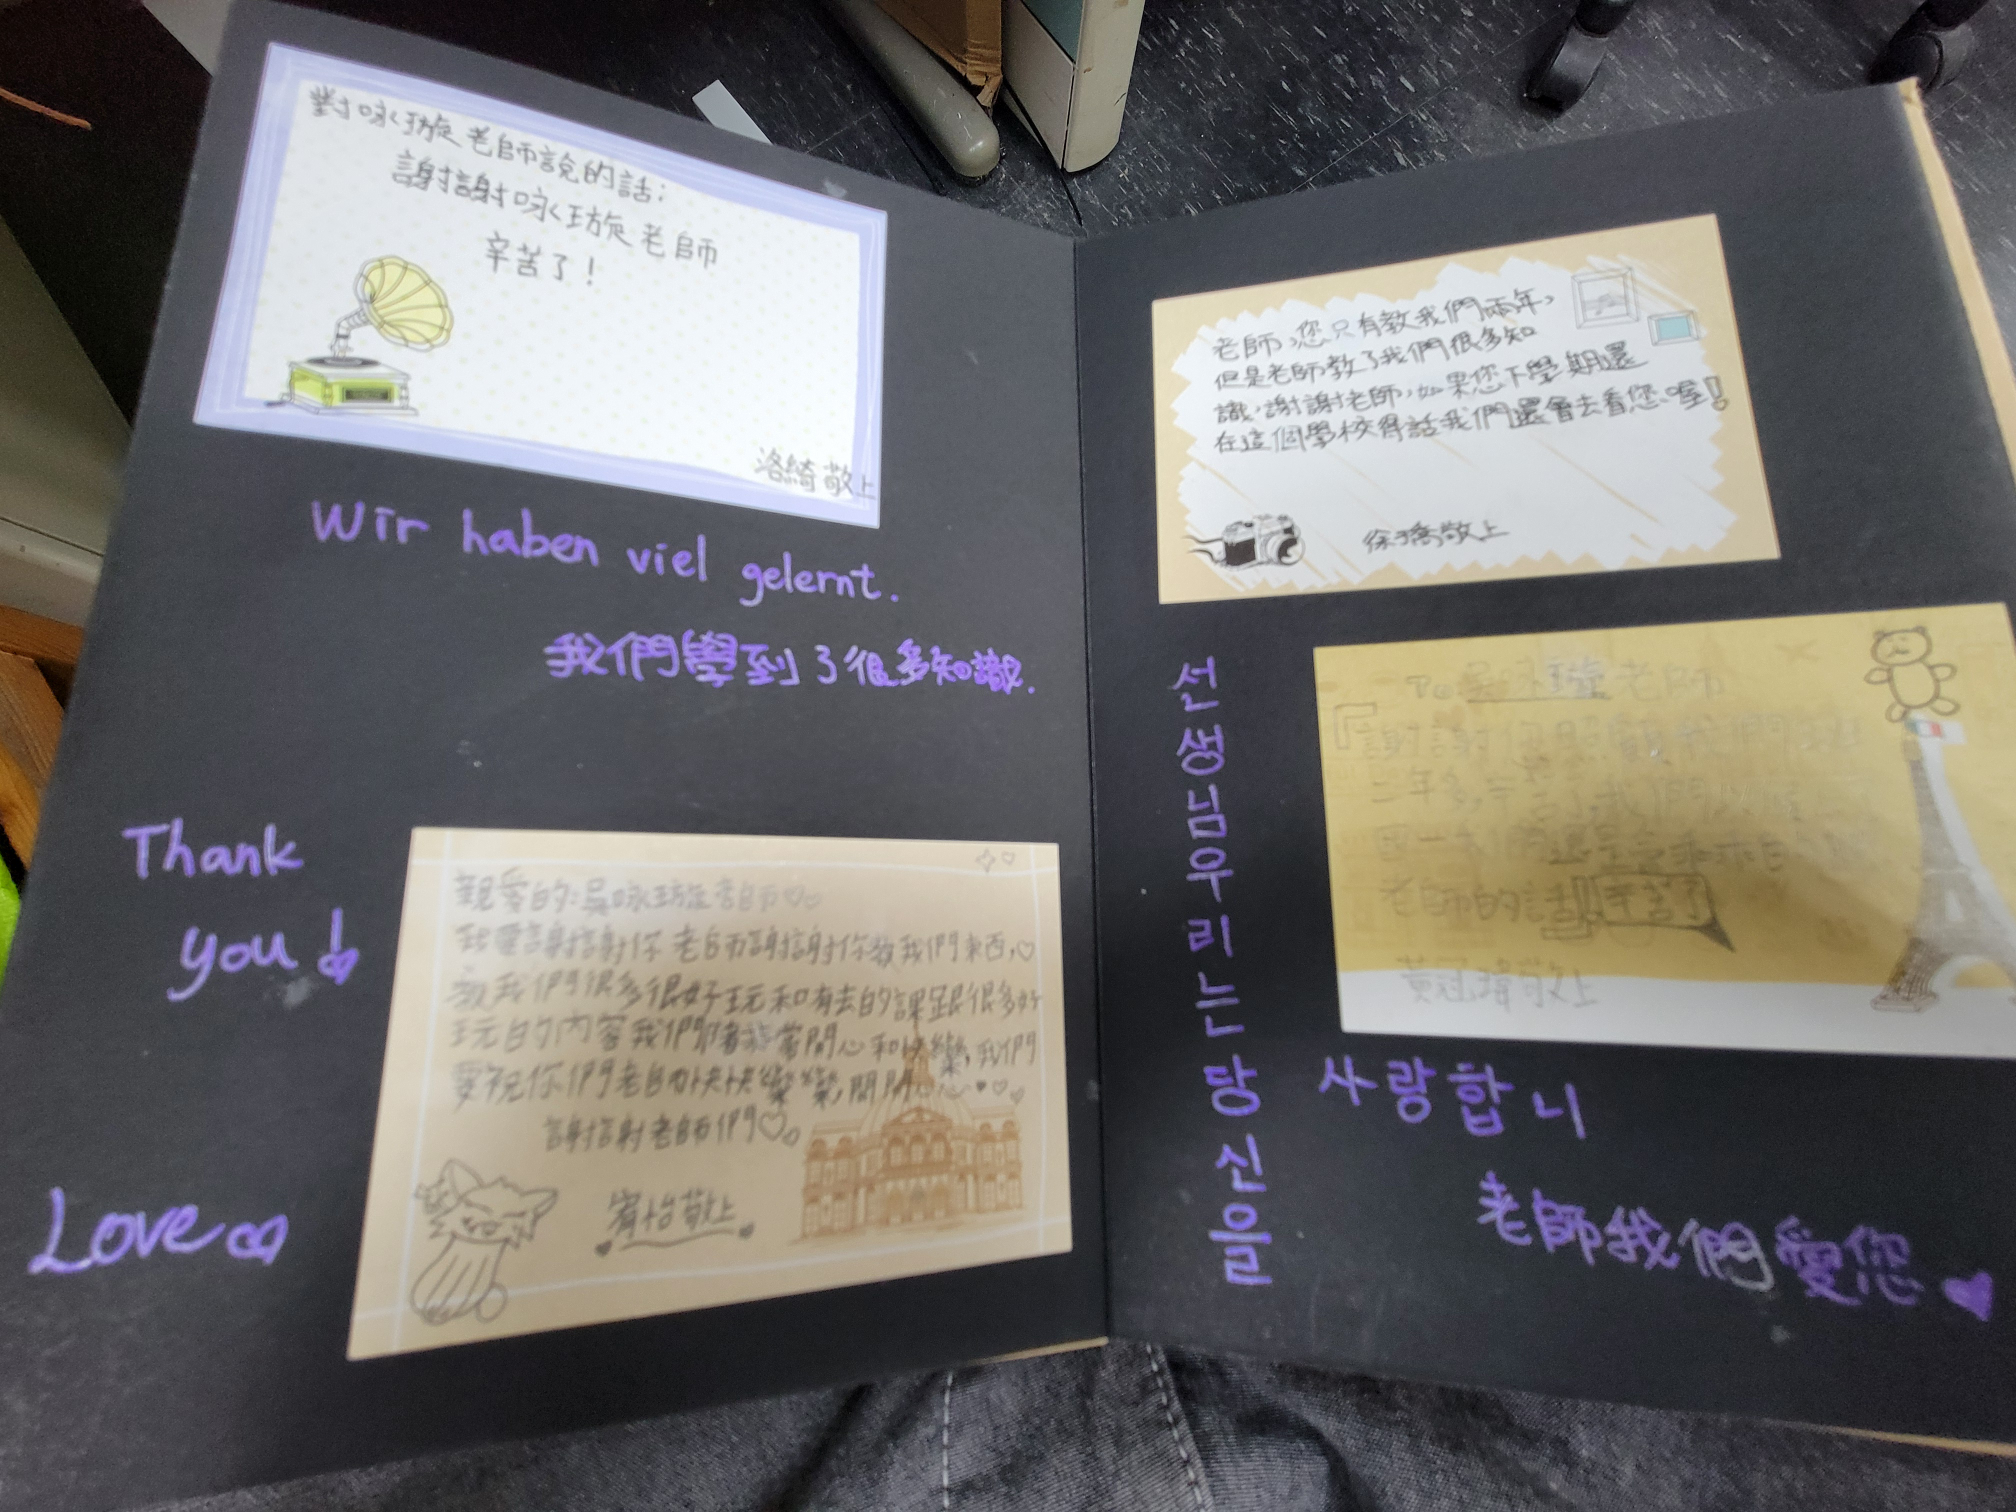 對咏璇老師說的話:
謝謝咏璇老師
辛苦了!
洛綺敬上
Wir haben viel gelernt.
我們學到了很多知識.
Thank
you!
Love
親愛的:吳咏璇老師♡♡
我要謝謝你 老師謝謝你教我們東西,♡
教我們很多很好玩和有去的課跟很多好
玩的內容我們都非常開心和快樂,我們
要祝你們老師快快樂樂,開開心心
謝謝老師們♡
宥怡敬上
老師,您只有教我們兩年,
但是老師教了我們很多知
識,謝謝老師,如果您下學期還
在這個學校得話我們還會去看您喔!
徐瑀敬上
선생님우리는당신을
사랑합니
To 吳咏璇老師
謝謝 我們
二年多,辛苦了,我們
老師的話』辛苦了
黃冠瑋敬上
老師我們愛您